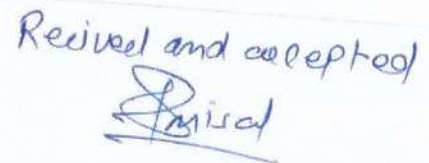 Recived and accepted